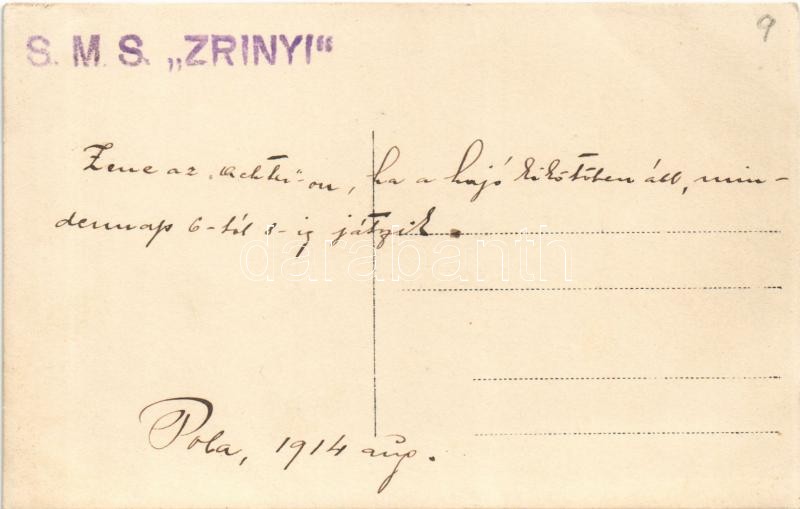 S. M. S. „ZRINYI“
9
Zene az „Achter”-on, ha a hajó kikötőben áll, min-
dennap 6-tól 8-ig játszik.
darabanth
Pola, 1914 aug.